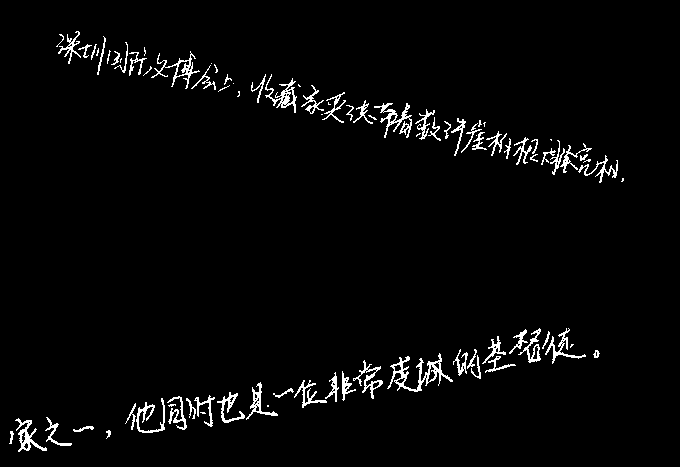 深圳国际文博会上，收藏家吴德带着数件崖柏根雕亮相，
家之一，他同时也是一位非常虔诚的基督徒。